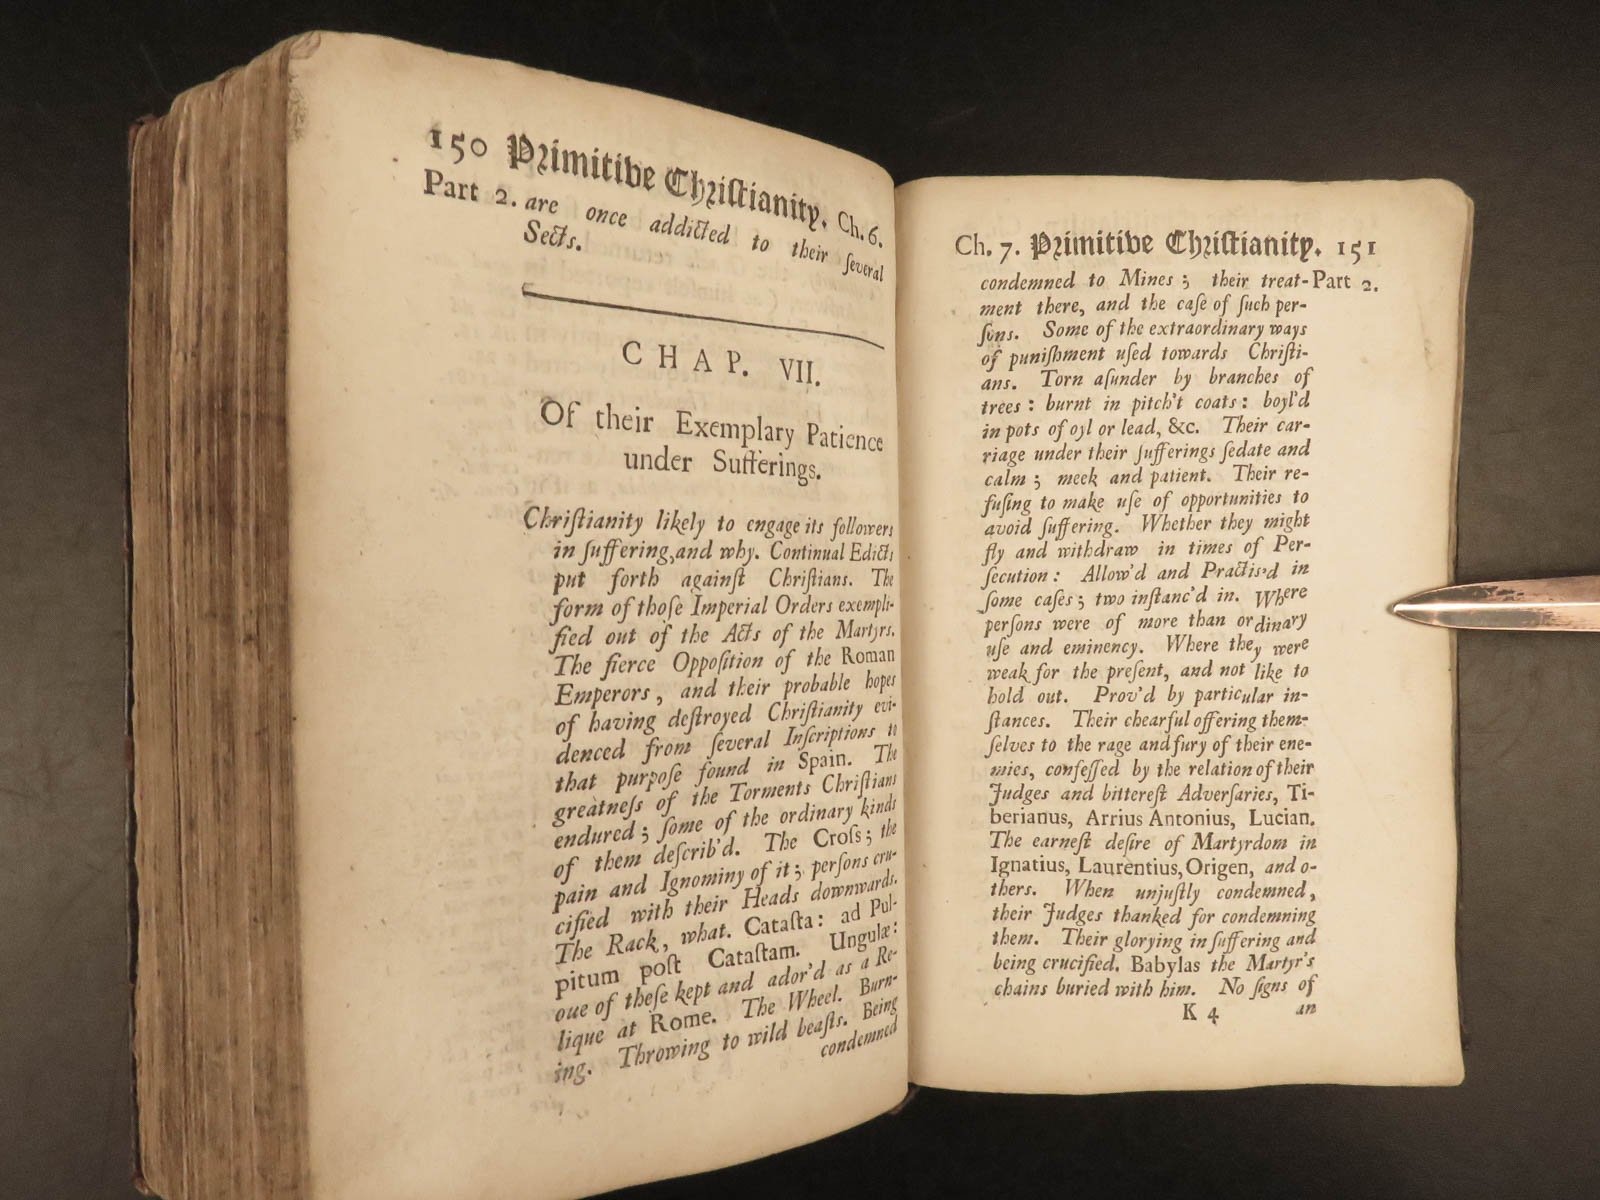 150 Primitive Christianity. Ch. 6.
Part 2. are once addicted to their ſeveral
Sects.
CHAP. VII.
Of their Exemplary Patience
under Sufferings.
Chriſtianity likely to engage its followers
in ſuffering, and why. Continual Edicts
put forth againſt Chriſtians. The
form of thoſe Imperial Orders exempli-
fied out of the Acts of the Martyrs.
The fierce Oppoſition of the Roman
Emperors, and their probable hopes
of having deſtroyed Chriſtianity evi-
denced from ſeveral Inſcriptions to
that purpoſe found in Spain. The
greatneſs of the Torments Chriſtians
endured; ſome of the ordinary kinds
of them deſcrib'd. The Croſs; the
pain and Ignominy of it; perſons cru-
cified with their Heads downwards.
The Rack, what. Cataſta: ad Pul-
pitum poſt Cataſtam. Ungulæ:
oue of theſe kept and ador'd as a Re-
lique at Rome. The Wheel. Burn-
ing. Throwing to wild beaſts. Being
condemned
Ch. 7. Primitive Chriſtianity. 151
condemned to Mines; their treat- Part 2.
ment there, and the caſe of ſuch per-
ſons. Some of the extraordinary ways
of puniſhment uſed towards Chriſti-
ans. Torn aſunder by branches of
trees: burnt in pitch't coats: boyl'd
in pots of oyl or lead, &c. Their car-
riage under their ſufferings ſedate and
calm; meek and patient. Their re-
fuſing to make uſe of opportunities to
avoid ſuffering. Whether they might
fly and withdraw in times of Per-
ſecution: Allow'd and Practis'd in
ſome caſes; two inſtanc'd in. Where
perſons were of more than ordinary
uſe and eminency. Where they were
weak for the preſent, and not like to
hold out. Prov'd by particular in-
ſtances. Their chearful offering them-
ſelves to the rage and fury of their ene-
mies, confeſſed by the relation of their
Judges and bittereſt Adverſaries, Ti-
berianus, Arrius Antonius, Lucian.
The earneſt deſire of Martyrdom in
Ignatius, Laurentius, Origen, and o-
thers. When unjuſtly condemned,
their Judges thanked for condemning
them. Their glorying in ſuffering and
being crucified. Babylas the Martyr's
chains buried with him. No ſigns of
K 4 an